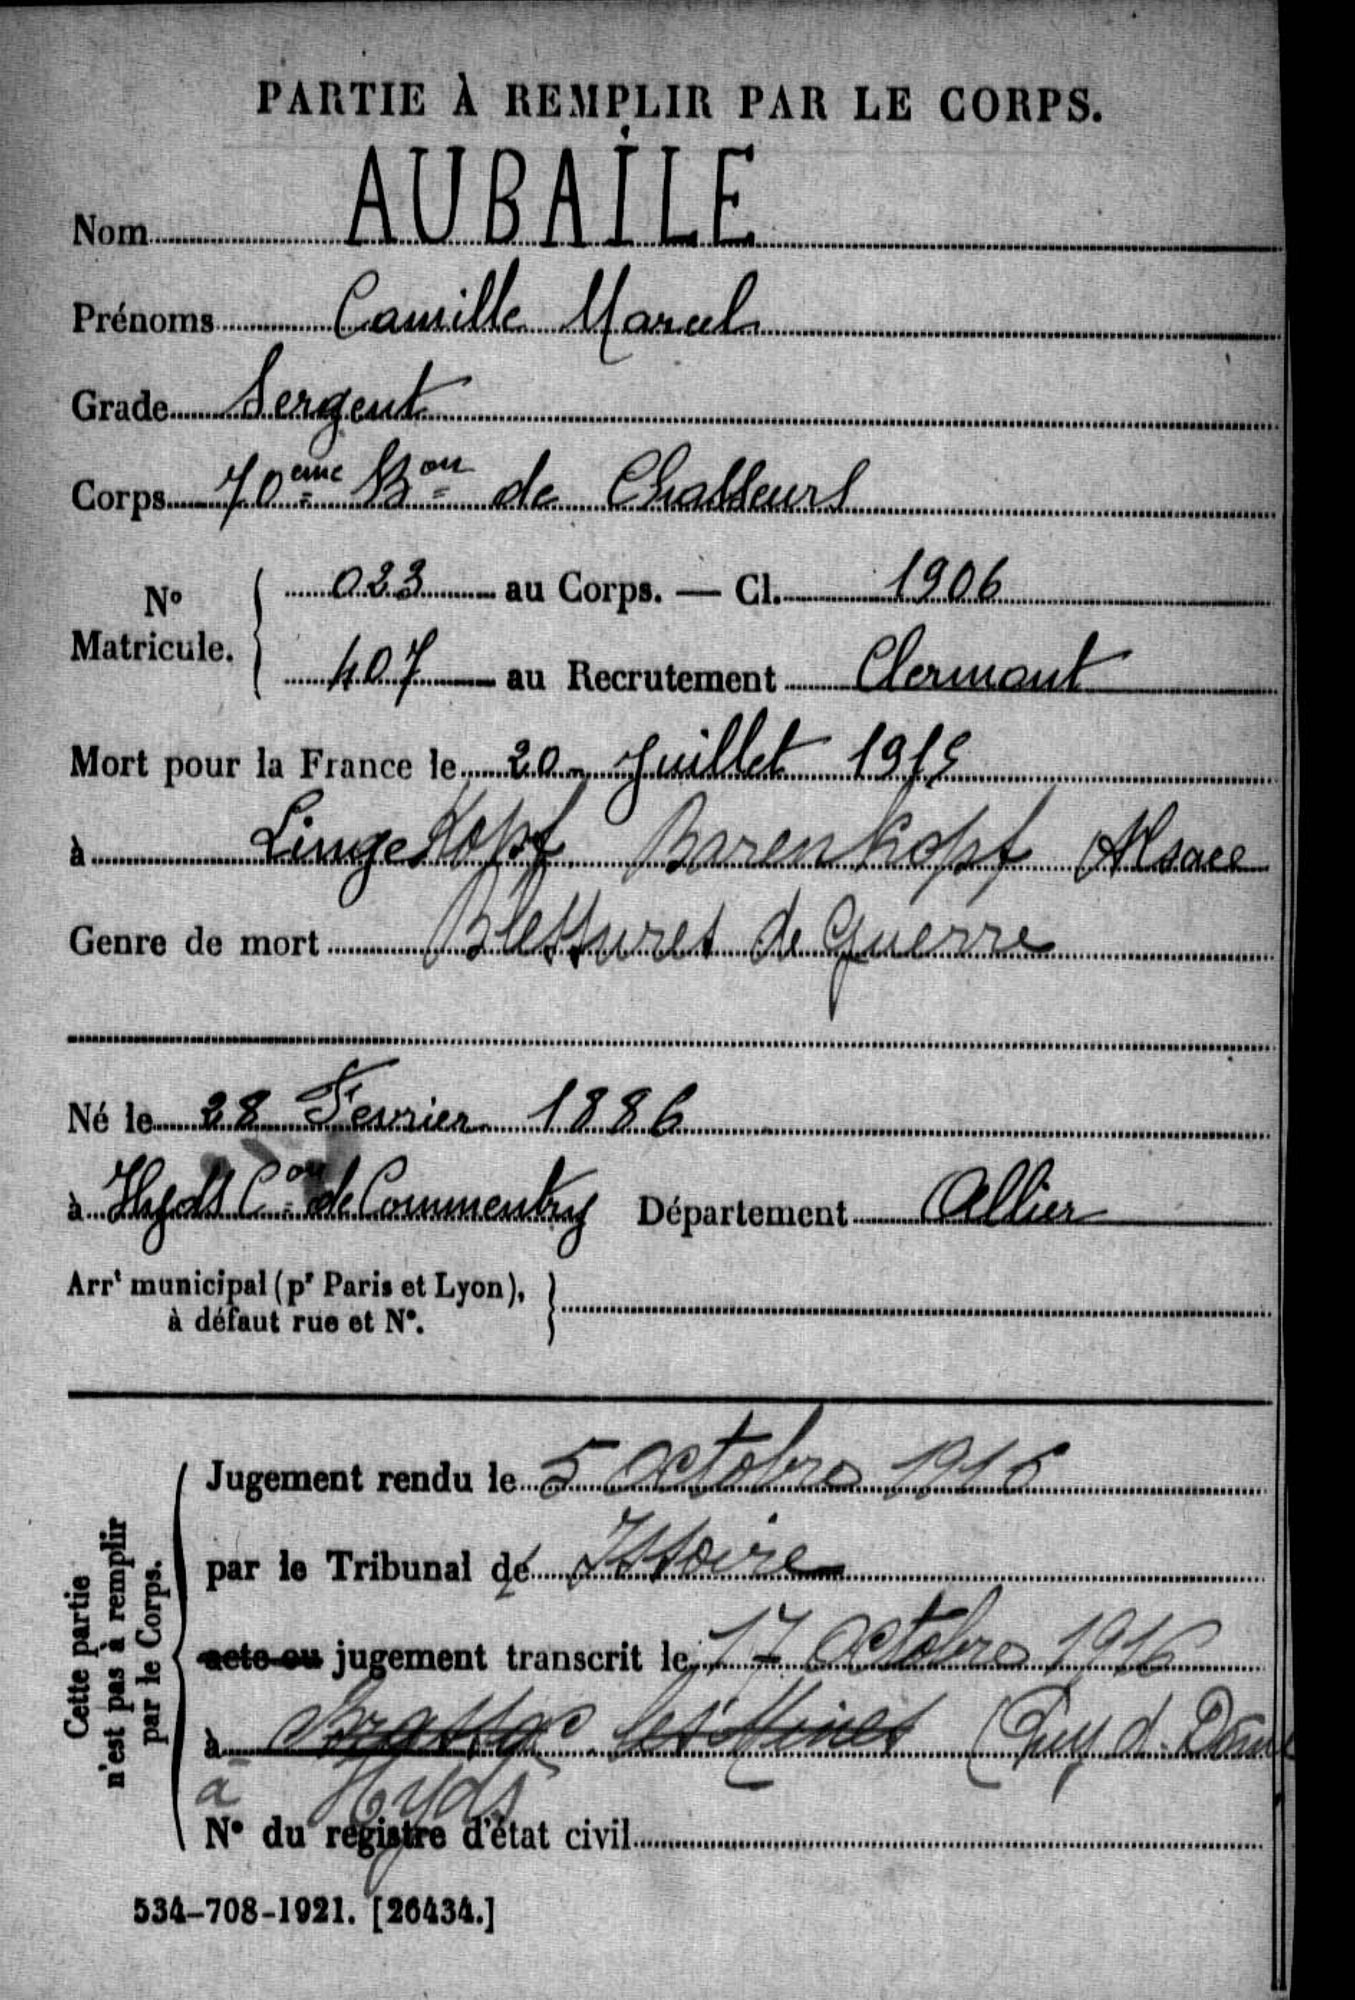 PARTIE À REMPLIR PAR LE CORPS.
Nom AUBAILE
Prénoms Camille Marcel
Grade Sergent
Corps 70ème Bon de Chasseurs
No Matricule. 023 au Corps. — Cl. 1906
407 au Recrutement Clermont
Mort pour la France le 20 Juillet 1915
à Linge Kopf Barenkopf Alsace
Genre de mort Blessures de Guerre
Né le 28 Fevrier 1886
à Hyds Con de Commentry Département Allier
Arrt municipal (pr Paris et Lyon),
à défaut rue et No.
Cette partie
n'est pas à remplir
par le Corps.
Jugement rendu le 5 Octobre 1916
par le Tribunal de Issoire
acte ou jugement transcrit le 17 Octobre 1916
à Brassac les Mines (Puy d. Dôme
à Hyds
No du registre d'état civil
534-708-1921. [26434.]